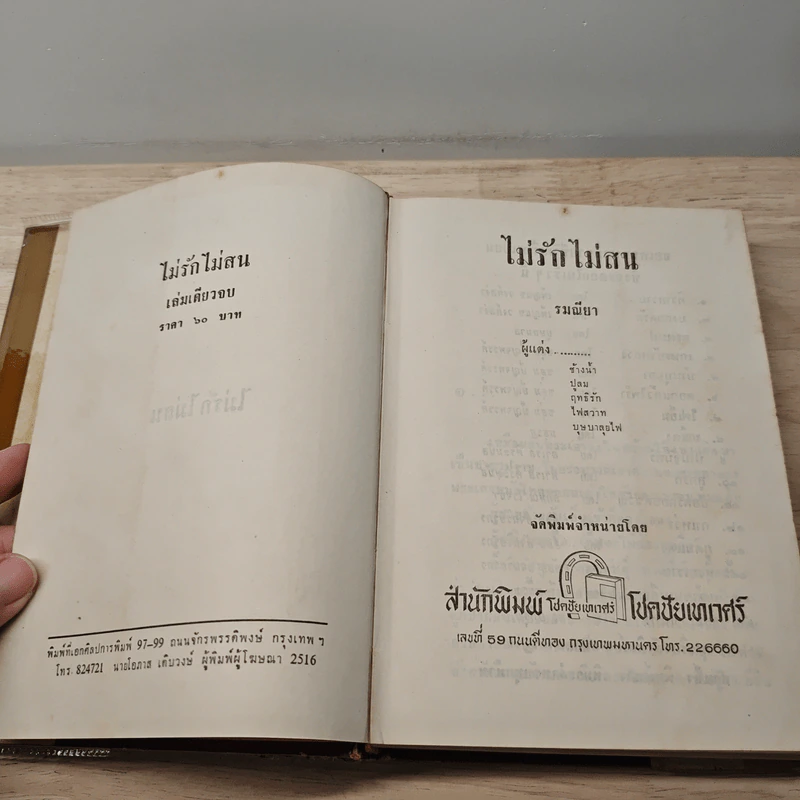 ไม่รักไม่สน
เล่มเดียวจบ
ราคา ๖๐ บาท
พิมพ์ที่เอกศิลปการพิมพ์ 97-99 ถนนจักรพรรดิพงษ์ กรุงเทพ ฯ
โทร. 824721 นายโอภาส เติบวงษ์ ผู้พิมพ์ผู้โฆษณา 2516
ไม่รักไม่สน
รมณียา
ผู้แต่ง . ..........
ช้างน้ำ
ปูลม
ฤทธิรัก
ไฟสวาท
บุษบาลุยไฟ
จัดพิมพ์จำหน่ายโดย
สำนักพิมพ์ โชคชัยเทเวศร์ โชคชัยเทเวศร์
เลขที่ 59 ถนนตีทอง กรุงเทพมหานคร โทร. 226660